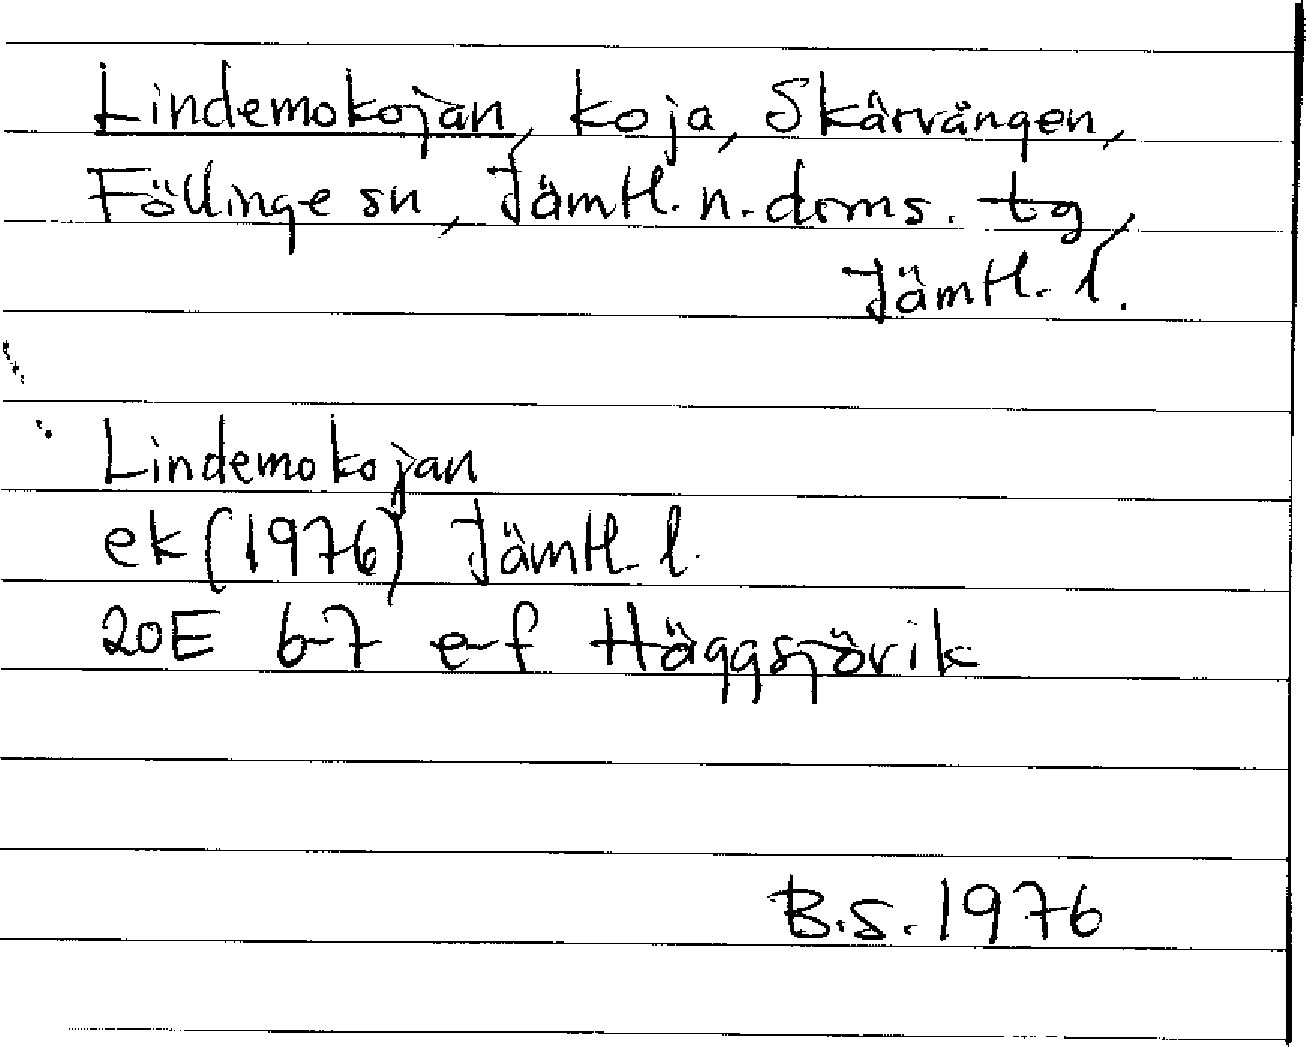 Lindemokojan, koja, Skärvången,
Föllinge sn, Jämtl. n. doms. tg,
Jämtl. l.
Lindemokojan
ek (1976) Jämtl. l.
20E 6-7 e-f Häggsjövik
B.S. 1976